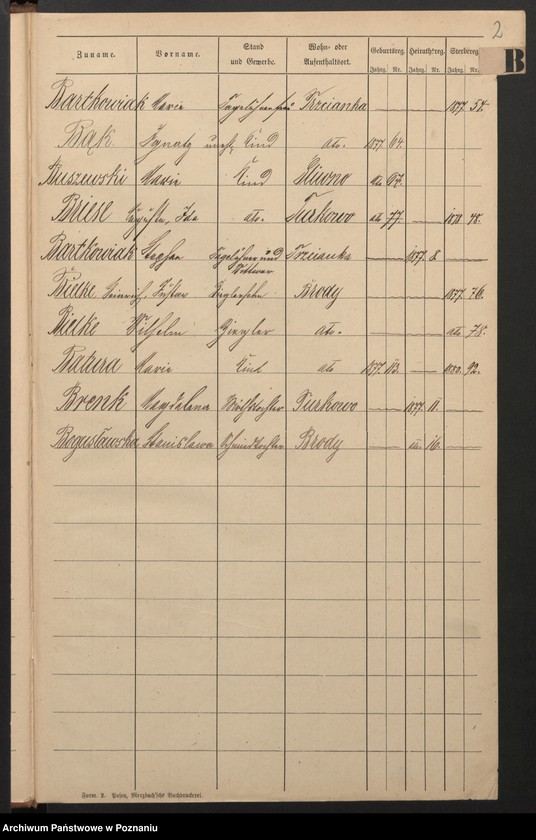 2
B
Zuname. Vorname. Stand und Gewerbe. Wohn- oder Aufenthaltsort. Geburtsreg. Heirathsreg. Sterbereg.
Jahrg. Nr. Jahrg. Nr. Jahrg. Nr.
Bartkowiak Marie Tagelöhnerfrau Trzcianka 1877. 54.
Bąk. Ignatz unehl. Kind dto. 1877. 64.
Buszewski Marie Kind Gliwno dto 67.
Briese Auguste, Ida dto. Turkowo dto 77. 1878. 48.
Bartkowiak Stephan Tagelöhner und Wittwer Trzcianka 1877. 8.
Bielke Heinrich, Gustav Zieglersohn Brody 1877. 76.
Bielke Wilhelm Ziegler dto. dto 78.
Batura Marie Kind dto 1877. 113. 1880. 92.
Brenk Magdalena Turkowo 1877. 11.
Bogusławska Stanislawa Schmiedtochter Brody 16.
Form. 2. Posen, Merzbach'sche Buchdruckerei.
Archiwum Państwowe w Poznaniu